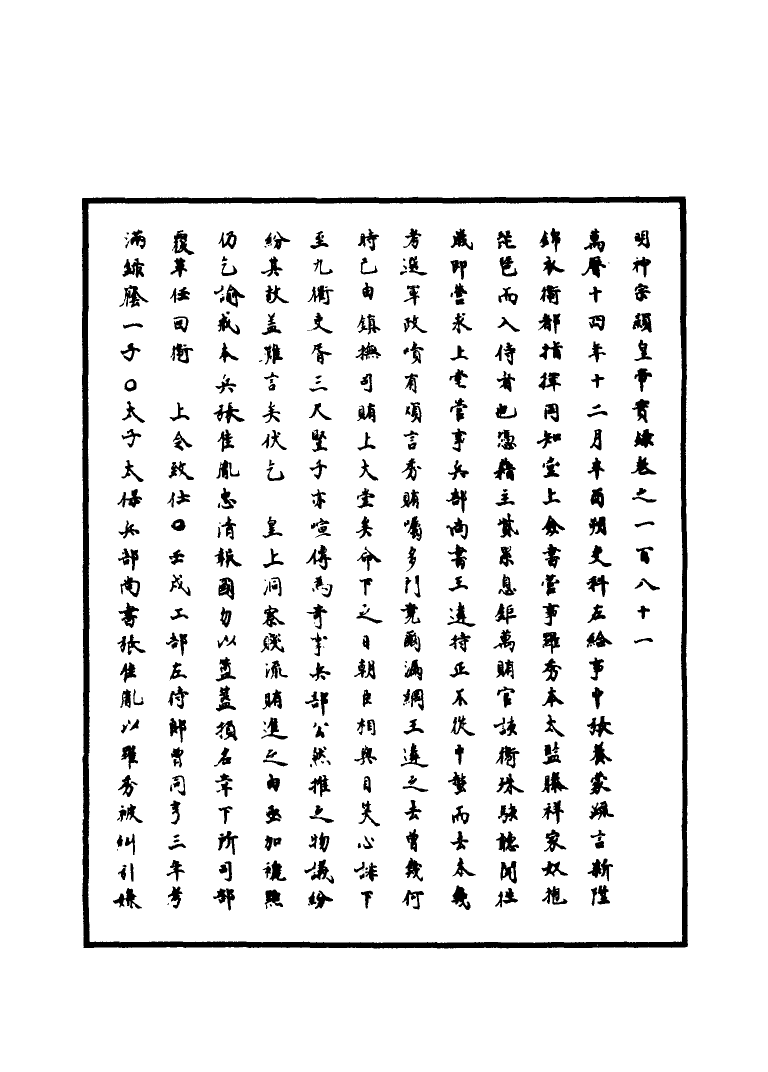 明神宗顯皇帝實錄卷之一百八十一
萬曆十四年十二月辛酉朔吏科左給事中張養蒙疏言新陞
錦衣衛都指揮同知堂上僉書管事羅秀本太監滕祥家奴抱
琵琶而入侍者也憑藉主貲累息鉅萬賄官該衛殊駭聽聞往
歲即營求上堂管事兵部尚書王遴持正不從中蜚而去本幾
考選軍政嘖有煩言秀賄囑多門竟爾漏網王遴之去曾幾何
時已由鎮撫司賄上大堂矣命下之日朝臣相與目笑心誹下
至九衢吏胥三尺豎子亦喧傳為奇事兵部公然推之物議紛
紛其故蓋難言矣伏乞　皇上洞察賤流賄進之由亟加褫黜
仍乞諭戒本兵張佳胤忠清報國勿以簠簋損名章下所司部
覆革任回衛　上令致仕〇壬戌工部左侍郎曾同亨三年考
滿録廕一子〇太子太保兵部尚書張佳胤以羅秀被糾引嫌